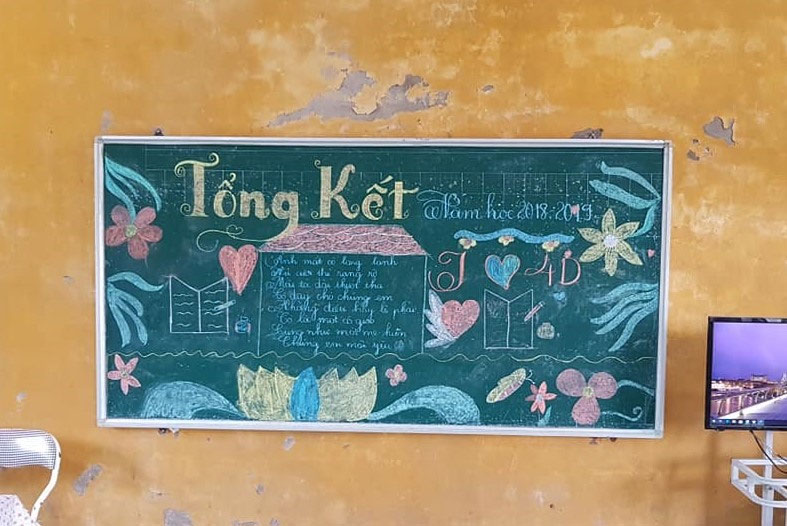 Tổng Kết
Năm học 2018-2019
Ánh mắt cô long lanh
cười thì rạng rỡ
Mái tóc dài thướt tha
Cô dạy cho chúng em
Những điều hay lẽ phải
Cô là một cô giáo
Cũng như một mẹ hiền
Chúng em mãi yêu
I
4D